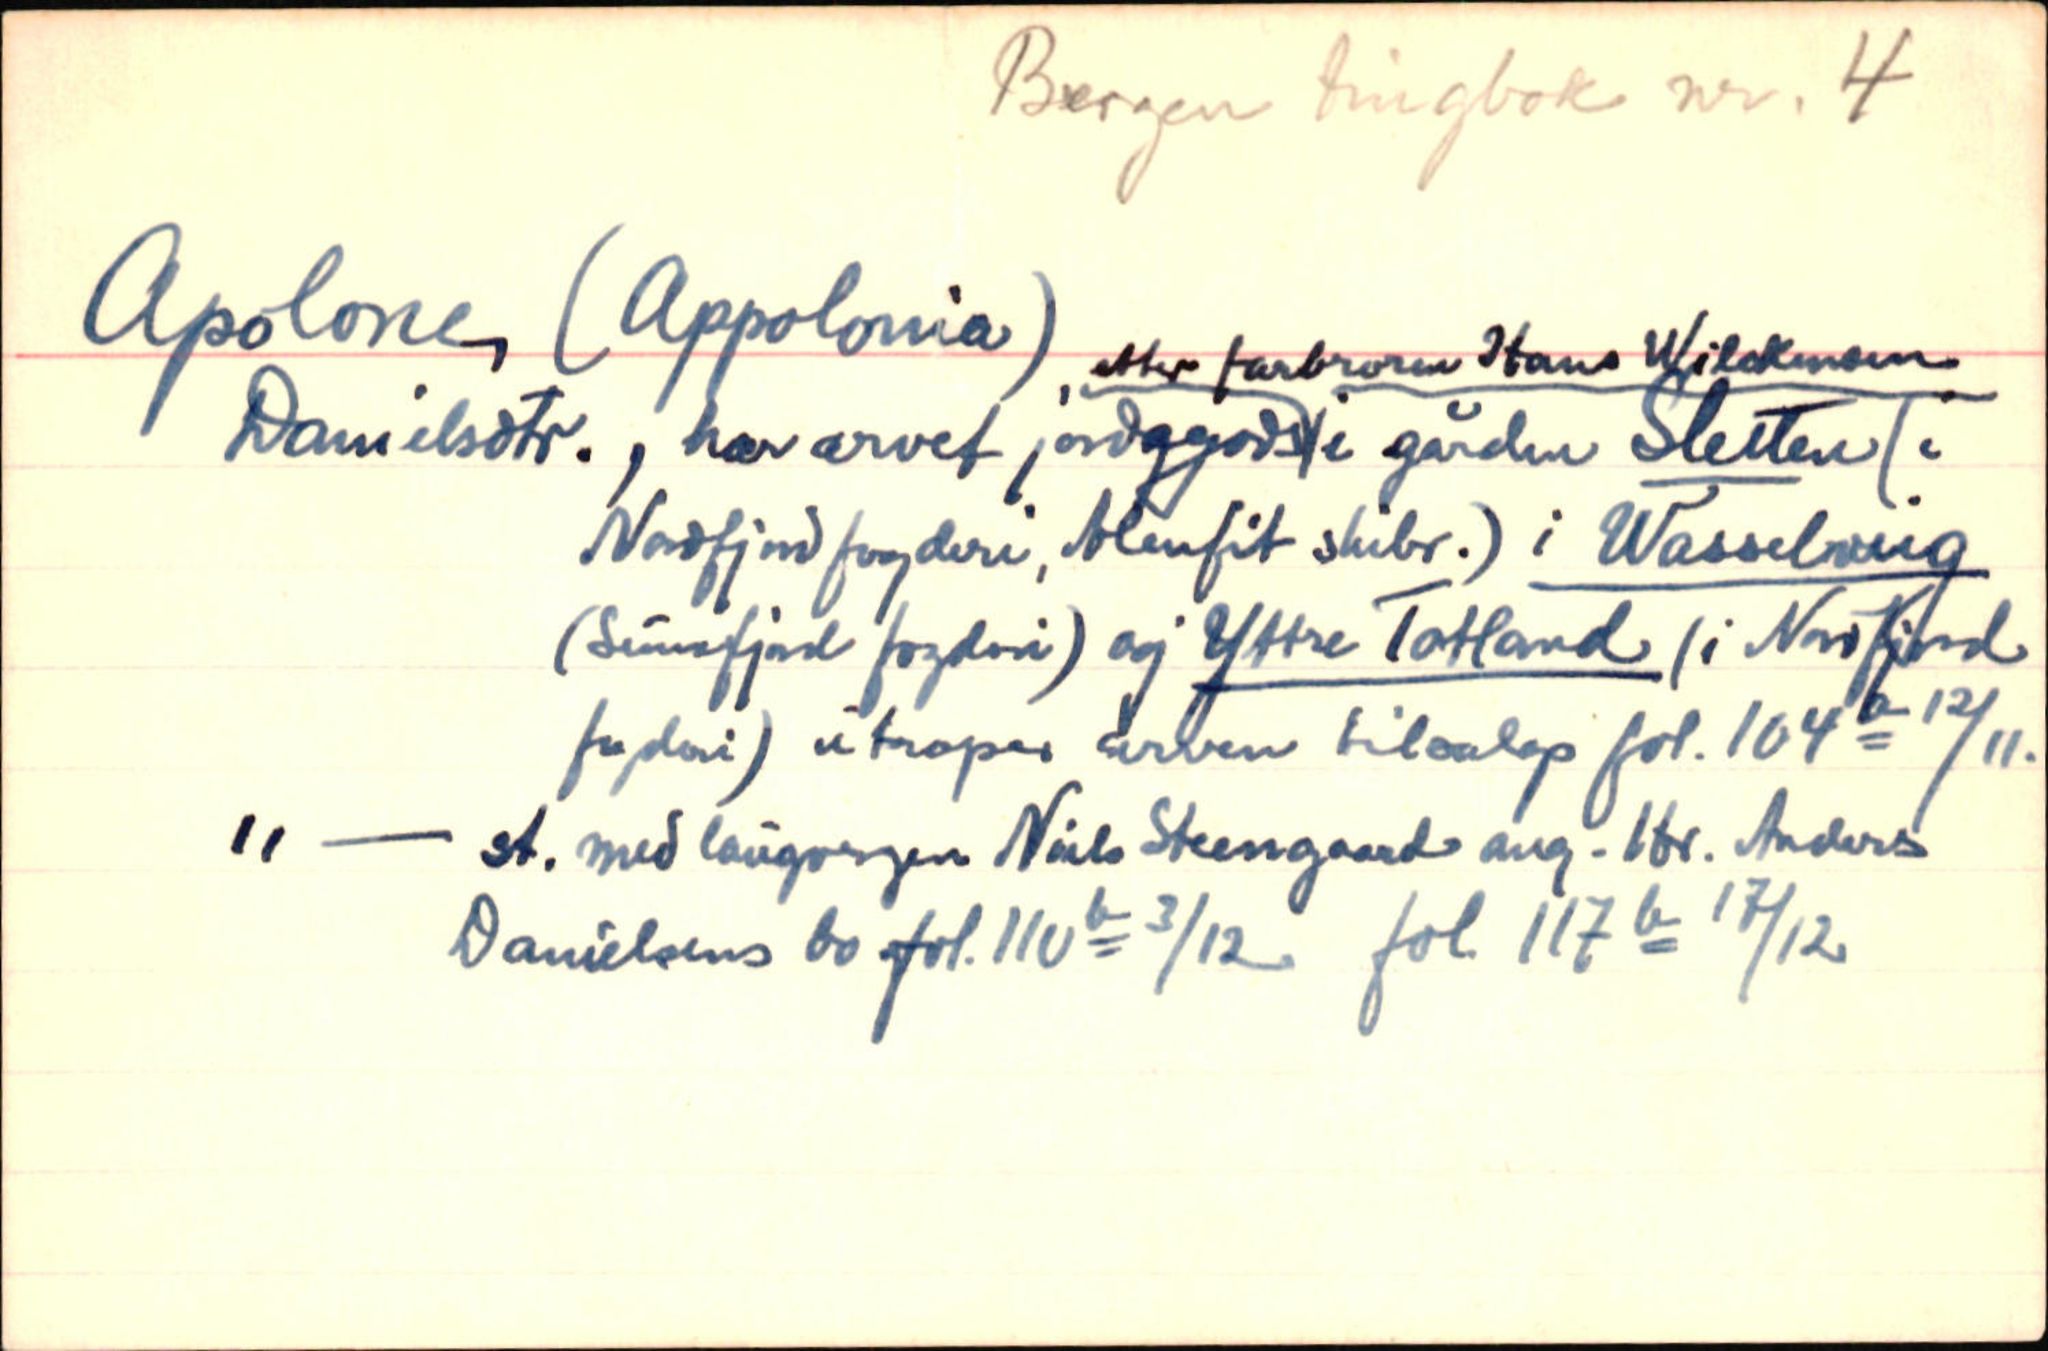 Bergen tingbok nr. 4
Apolone, (Appolonia)
etter farbroren Hans Wilckensen
Danielsdtr., har arvet jordegods i gården Sletten (i
Nordfjord fogderi, skibr.) i Wasselwiig
(Sunnfjord fogderi) og Yttre Totland (i Nordfjord
fogderi) arven tilsalgs fol. 104 a 12/11.
" — st. med laugvergen Niels Steengaard ang. Hr. Anders
Danielsens bo fol. 110 b 3/12 fol. 117 b 17/12